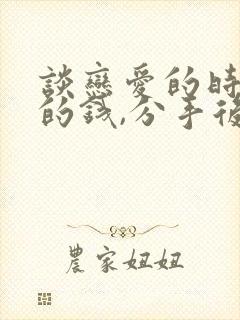 談戀愛的時
的錢,分手後
農家妞妞